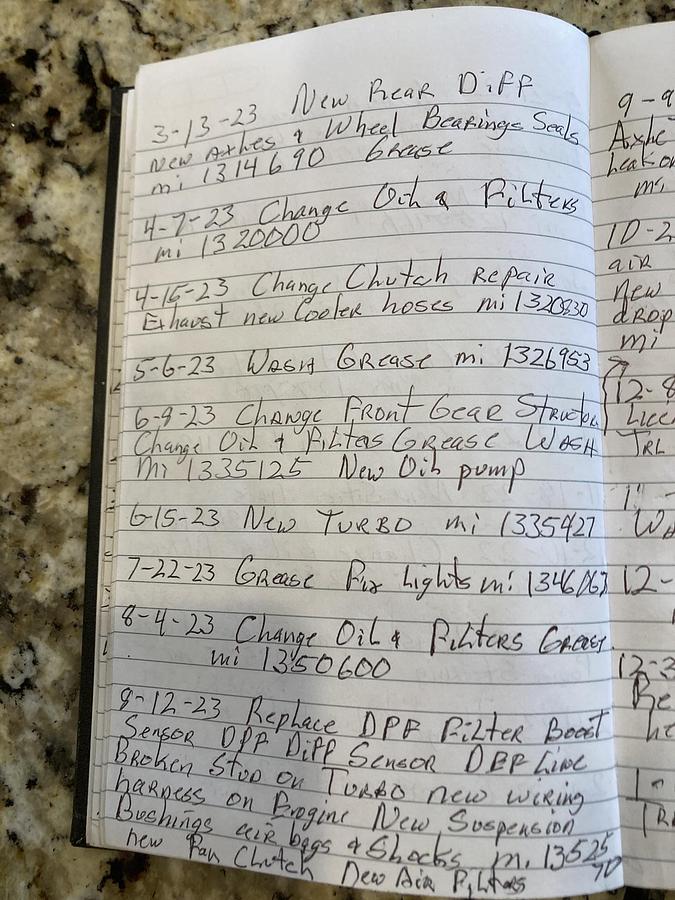 3-13-23 New Rear Diff
New Axhes & Wheel Bearings Seals
mi 1314690 Grease
4-7-23 Change Oih & Filters
mi 1320000
4-15-23 Change Chutch repair
Exhaust new Cooler hoses mi 1320830
5-6-23 Wash Grease mi 1326953
6-9-23 Change Front Gear
Change Oih & Filters Grease Wash
mi 1335125 New Oih pump
6-15-23 New Turbo mi 1335427
7-22-23 Grease Fix Lights mi 1346067
8-4-23 Change Oih & Fihters Grease
mi 1350600
8-12-23 Replace DPF Filter Boost
Sensor DPF Diff Sensor DEF Line
Broken Stud on Turbo new wiring
harness on Engine New Suspension
Bushings air bags & Shocks mi 13525
70
new Fan Chutch New Air Filters
9-9
Axhe
heak on
mi
10-2
air
new
drop
mi
12-8
TRL
12-
12-3